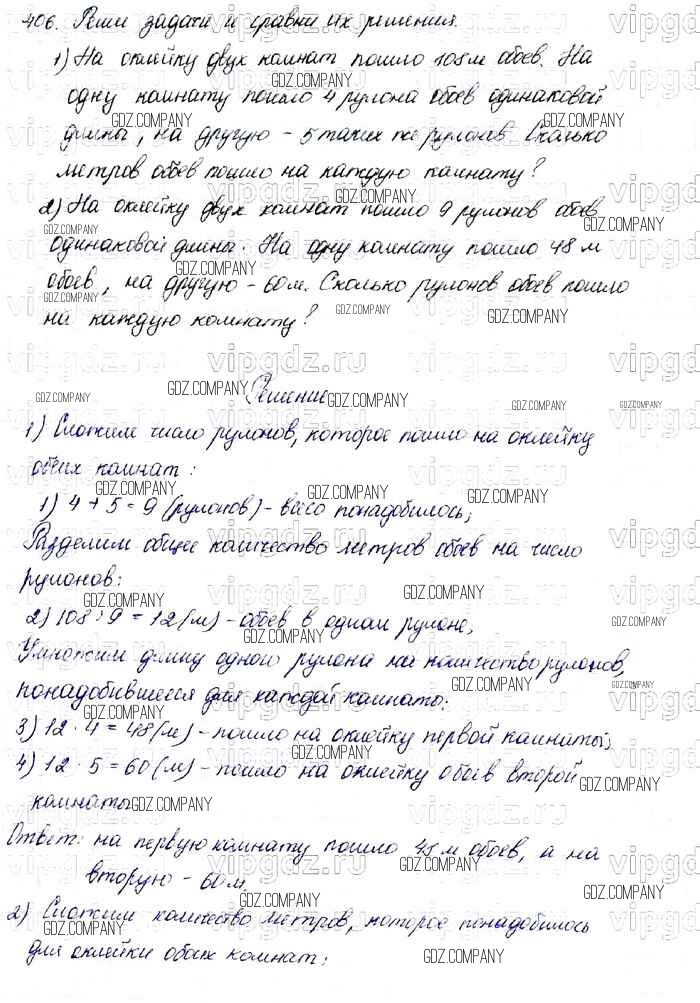 406. Реши задачи и сравни их решения.
1) На оклейку двух комнат пошло 108 м обоев. На
одну комнату пошло 4 рулона обоев одинаковой
длины, на другую - 5 таких же рулонов. Сколько
метров обоев пошло на каждую комнату?
2) На оклейку двух комнат пошло 9 рулонов обоев
одинаковой длины. На одну комнату пошло 48 м
обоев, на другую - 60 м. Сколько рулонов обоев пошло
на каждую комнату?
Решение
1) Сложим число рулонов, которое пошло на оклейку
обеих комнат:
1) 4 + 5 = 9 (рулонов) - всего понадобилось;
Разделим общее количество метров обоев на число
рулонов:
2) 108 : 9 = 12 (м) - обоев в одном рулоне,
Умножим длину одного рулона на количество рулонов,
понадобившееся для каждой комнаты:
3) 12 · 4 = 48 (м) - пошло на оклейку первой комнаты;
4) 12 · 5 = 60 (м) - пошло на оклейку обоев второй
комнаты
Ответ: на первую комнату пошло 48 м обоев, а на
вторую - 60 м.
2) Сложим количество метров, которое понадобилось
для оклейки обоих комнат: